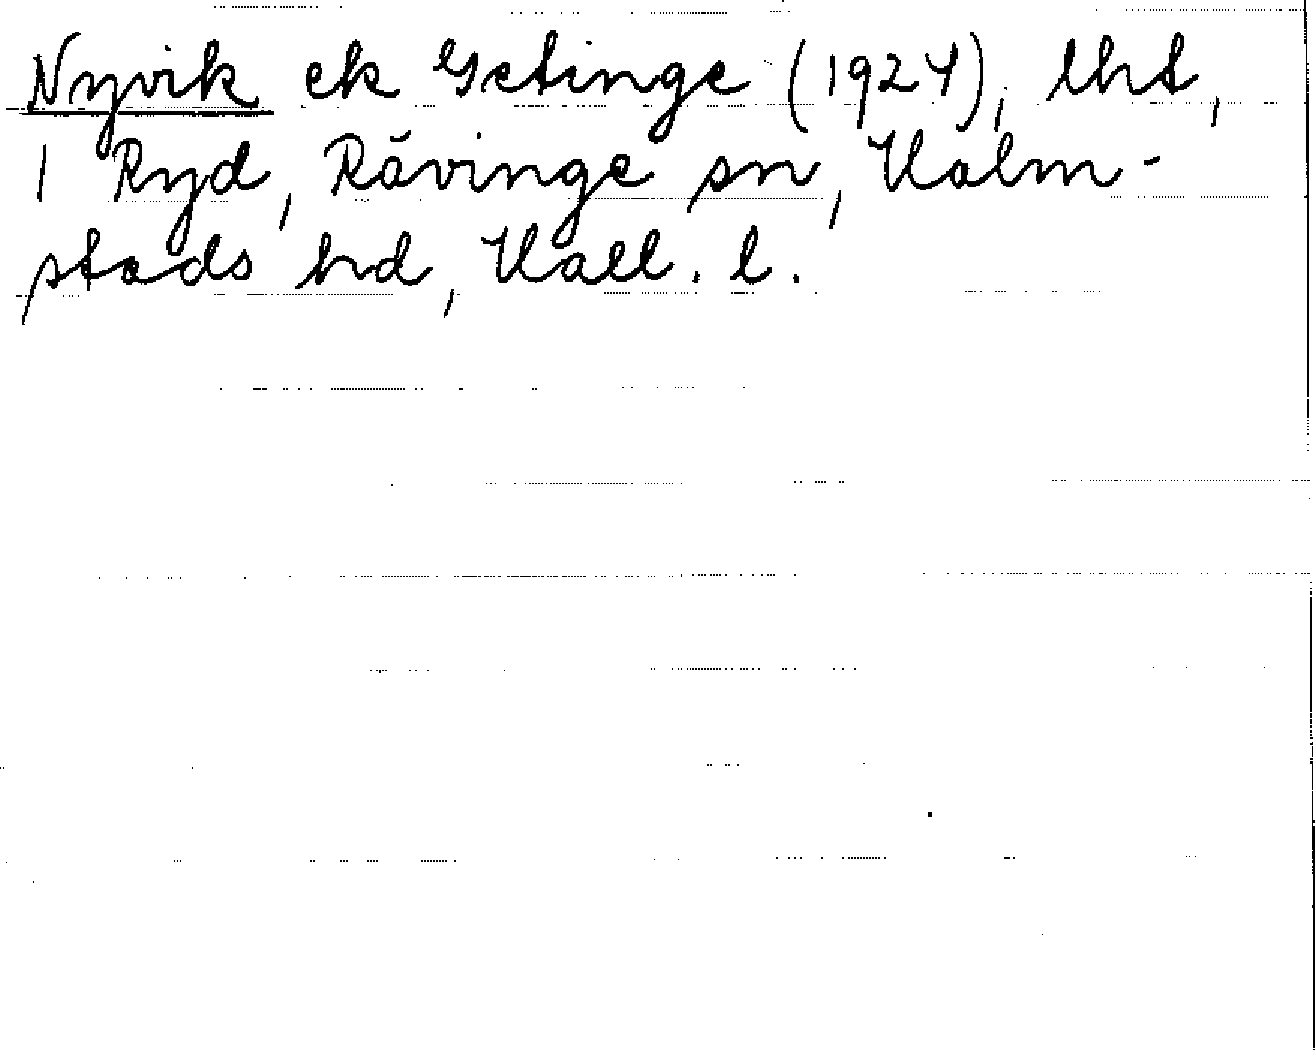 Nyvik ek Getinge (1924), lht,
1 Ryd, Rävinge sn, Halm-
stads hd, Hall. l.